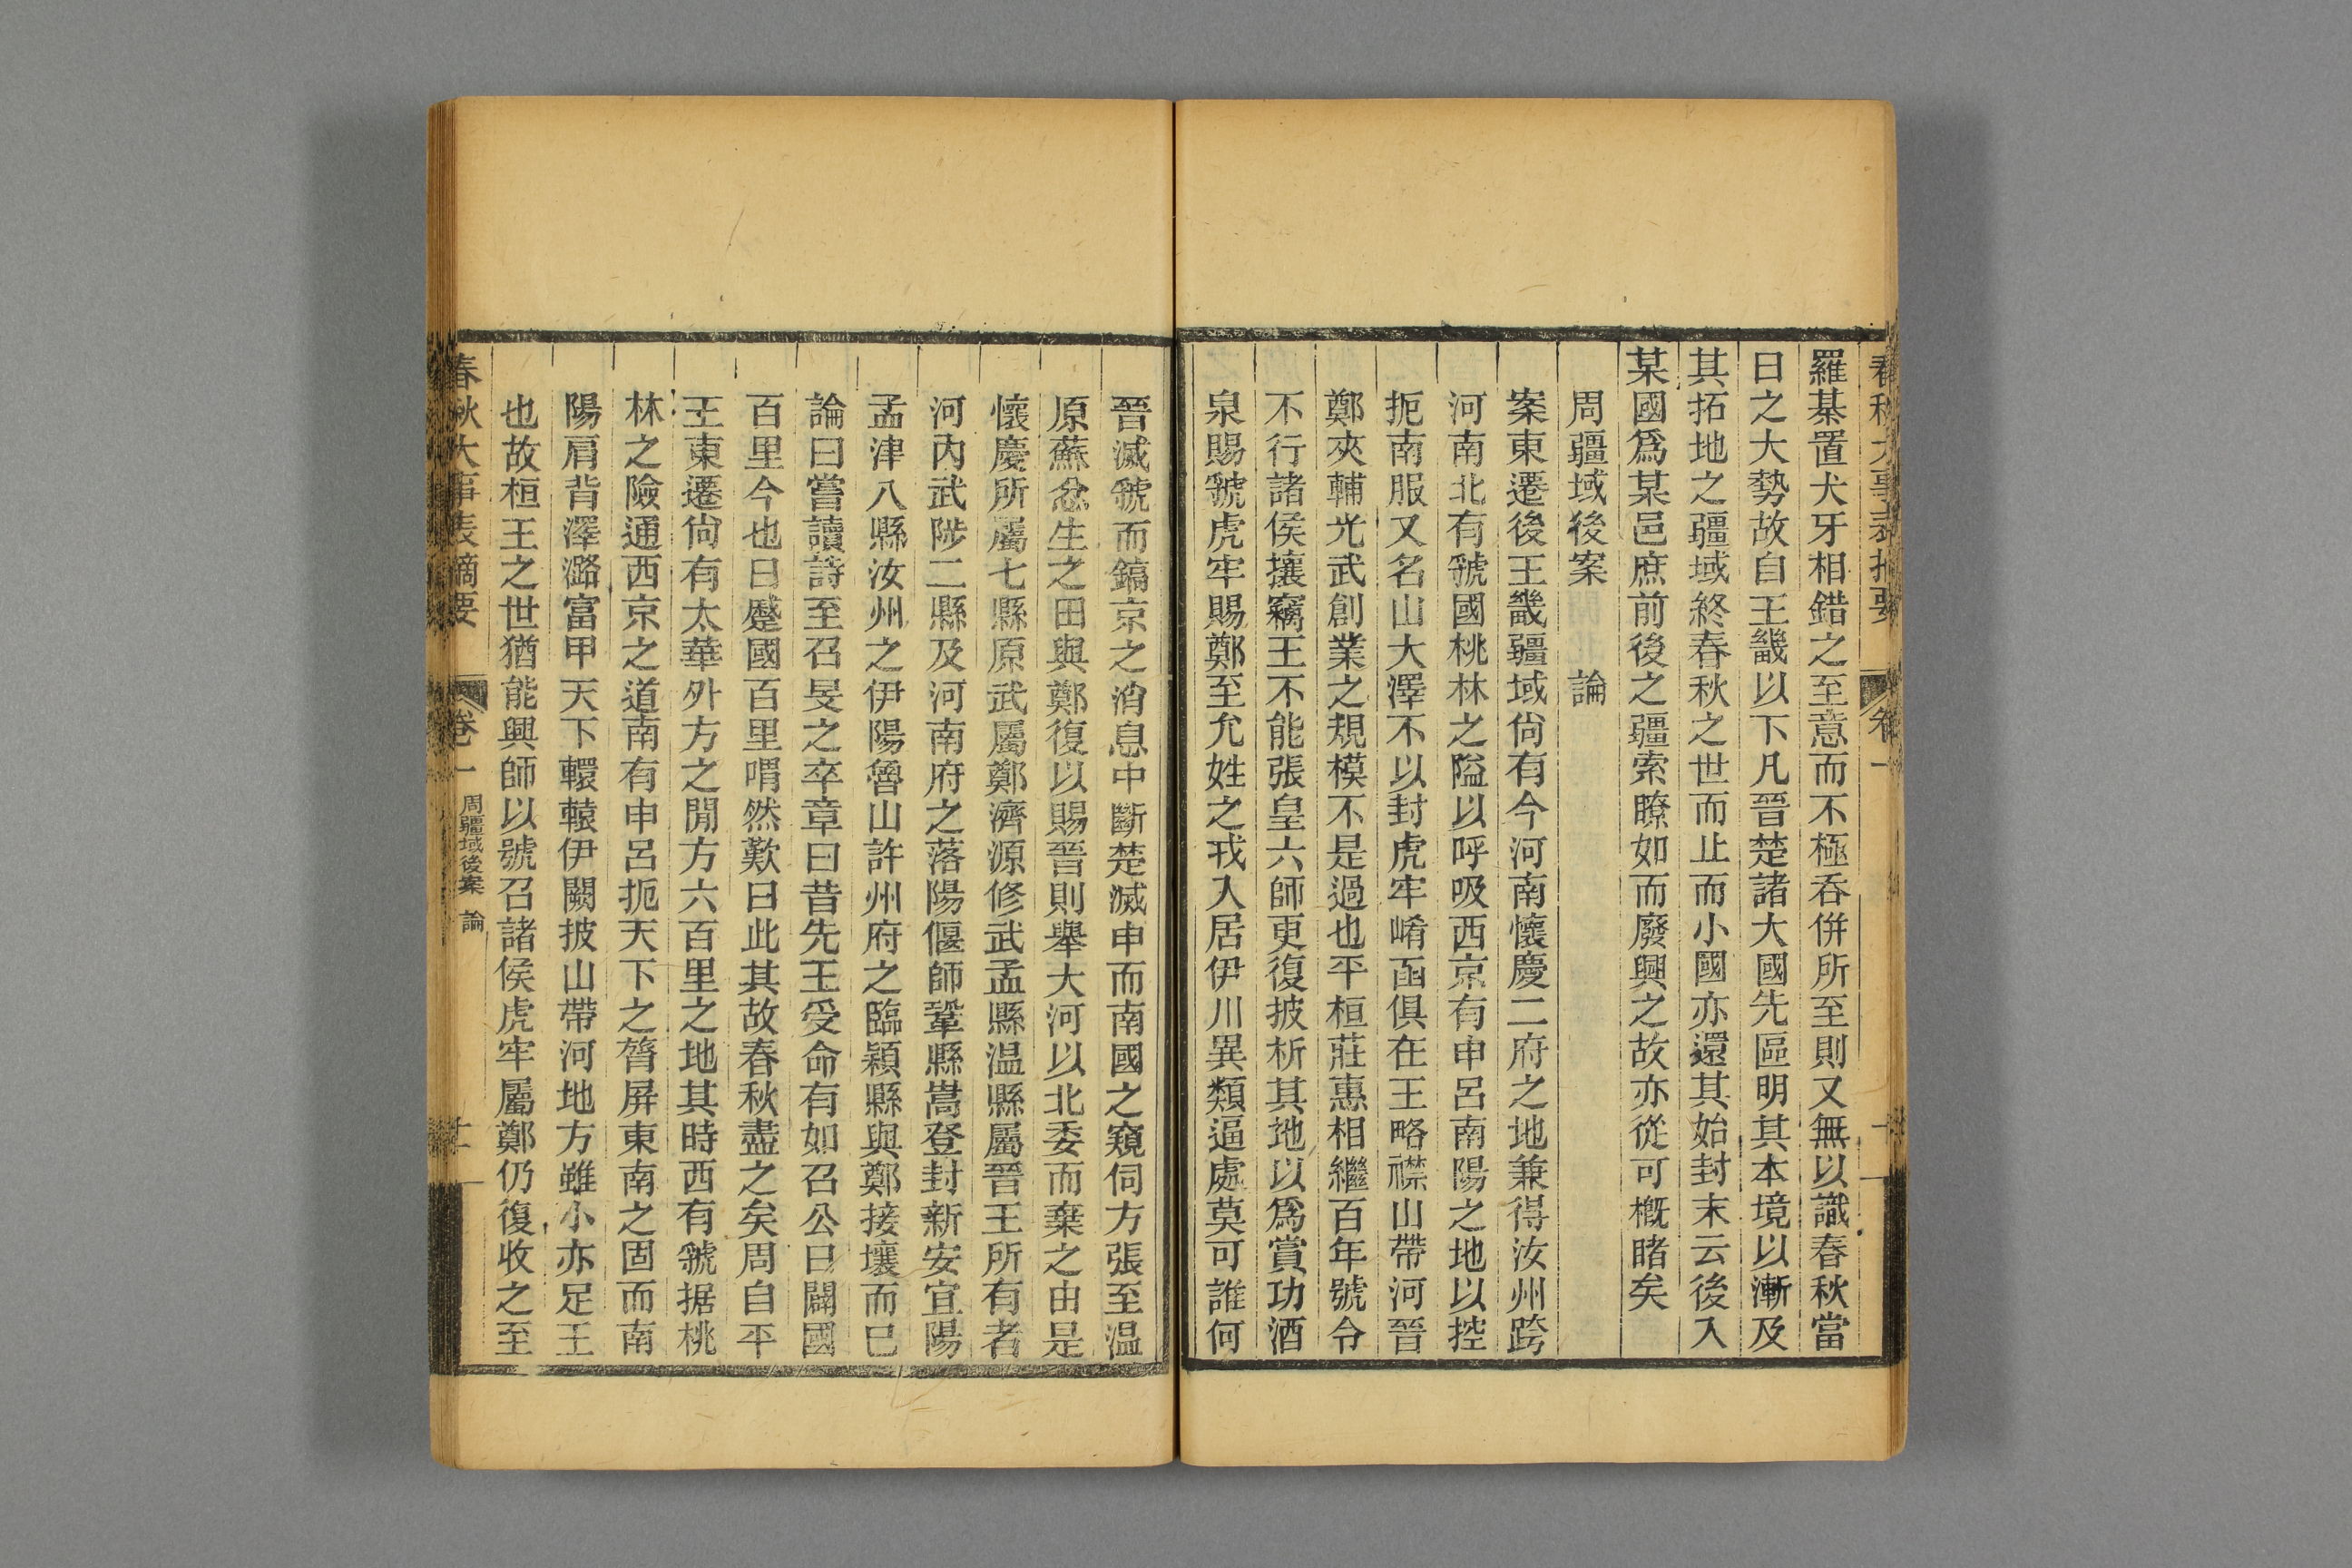 羅棊置犬牙相錯之至意而不極吞併所至則又無以識春秋當
日之大勢故自王畿以下凡晉楚諸大國先區明其本境以漸及
其拓地之疆域終春秋之世而止而小國亦還其始封末云後入
某國爲某邑庶前後之疆索瞭如而廢興之故亦從可槪睹矣
周疆域後案　論
案東遷後王畿疆域尙有今河南懷慶二府之地兼得汝州跨
河南北有虢國桃林之隘以呼吸西京有申呂南陽之地以控
扼南服又名山大澤不以封虎牢崤函俱在王略襟山帶河晉
鄭夾輔光武創業之規模不是過也平桓莊惠相繼百年號令
不行諸侯攘竊王不能張皇六師更復披析其地以爲賞功酒
泉賜虢虎牢賜鄭至允姓之戎入居伊川異類逼處莫可誰何
晉滅虢而鎬京之消息中斷楚滅申而南國之窺伺方張至温
原蘇忿生之田與鄭復以賜晉則舉大河以北委而棄之由是
懷慶所屬七縣原武屬鄭濟源修武孟縣温縣屬晉王所有者
河內武陟二縣及河南府之落陽偃師鞏縣嵩登封新安宜陽
孟津八縣汝州之伊陽魯山許州府之臨潁縣與鄭接壤而已
論曰嘗讀詩至召旻之卒章曰昔先王受命有如召公日闢國
百里今也日蹙國百里喟然歎曰此其故春秋盡之矣周自平
王東遷尙有太華外方之閒方六百里之地其時西有虢据桃
林之險通西京之道南有申呂扼天下之膂屏東南之固而南
陽肩背澤潞富甲天下轘轅伊闕披山帶河地方雖小亦足王
也故桓王之世猶能興師以號召諸侯虎牢屬鄭仍復收之至
春秋大事表摘要　卷一　周疆域後案　論